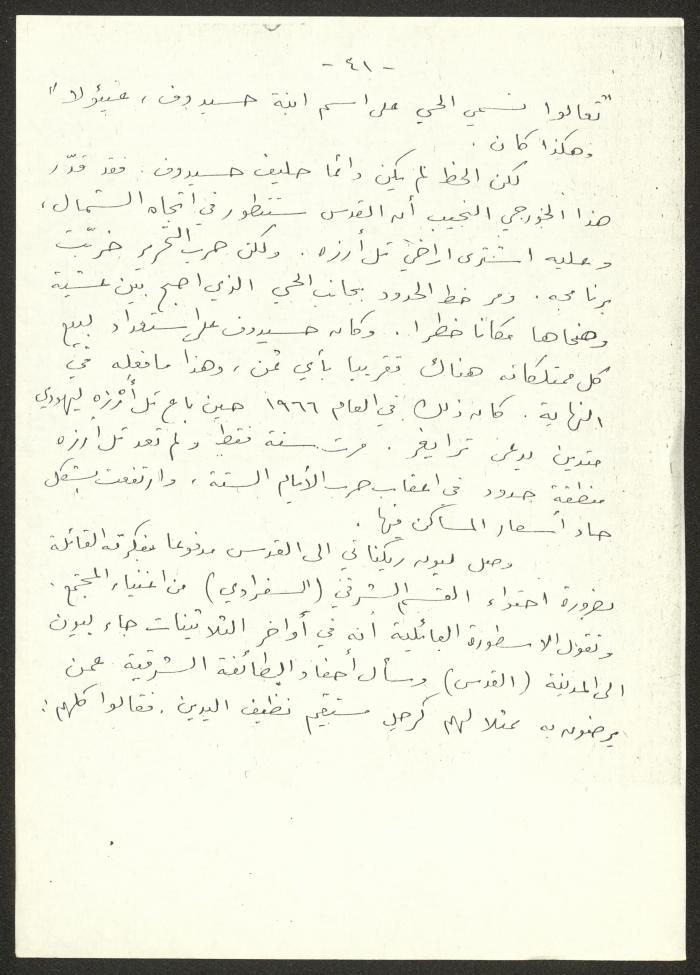 - ٤١ -
"تعالوا نسمي الحي على اسم ابنة حسيدوف، غيئولا"
وهكذا كان.
لكن الحظ لم يكن دائما حليف حسيدوف. فقد قدّر
هذا الخورجي النجيب أن القدس ستتطور في اتجاه الشمال،
وعليه اشترى اراضي تل أرزه. ولكن حرب التحرير خرّبت
برنامجه. ومر خط الحدود بجانب الحي الذي اصبح بين عشية
وضحاها مكانا خطرا. وكان حسيدوف على استعداد لبيع
كل ممتلكاته هناك تقريبا بأي ثمن، وهذا ما فعله في
النهاية. كان ذلك في العام ١٩٦٦ حين باع تل أرزه ليهودي
متدين يدعى ترايغر. مرت سنة فقط ولم تعد تل أرزه
منطقة حدود في اعقاب حرب الأيام الستة، وارتفعت بشكل
حاد أسعار المساكن فيها.
وصل ليون ريكناتي الى القدس مدفوعا بفكرته القائلة
بضرورة احتواء القسم الشرقي (السفرادي) من اغنياء المجتمع.
وتقول الاسطورة العائلية أنه في أواخر الثلاثينات جاء ليون
الى المدينة (القدس) وسأل أحفاد الطائفة الشرقية عمن
يرضون به ممثلا لهم كرجل مستقيم نظيف اليدين. فقالوا كلهم: